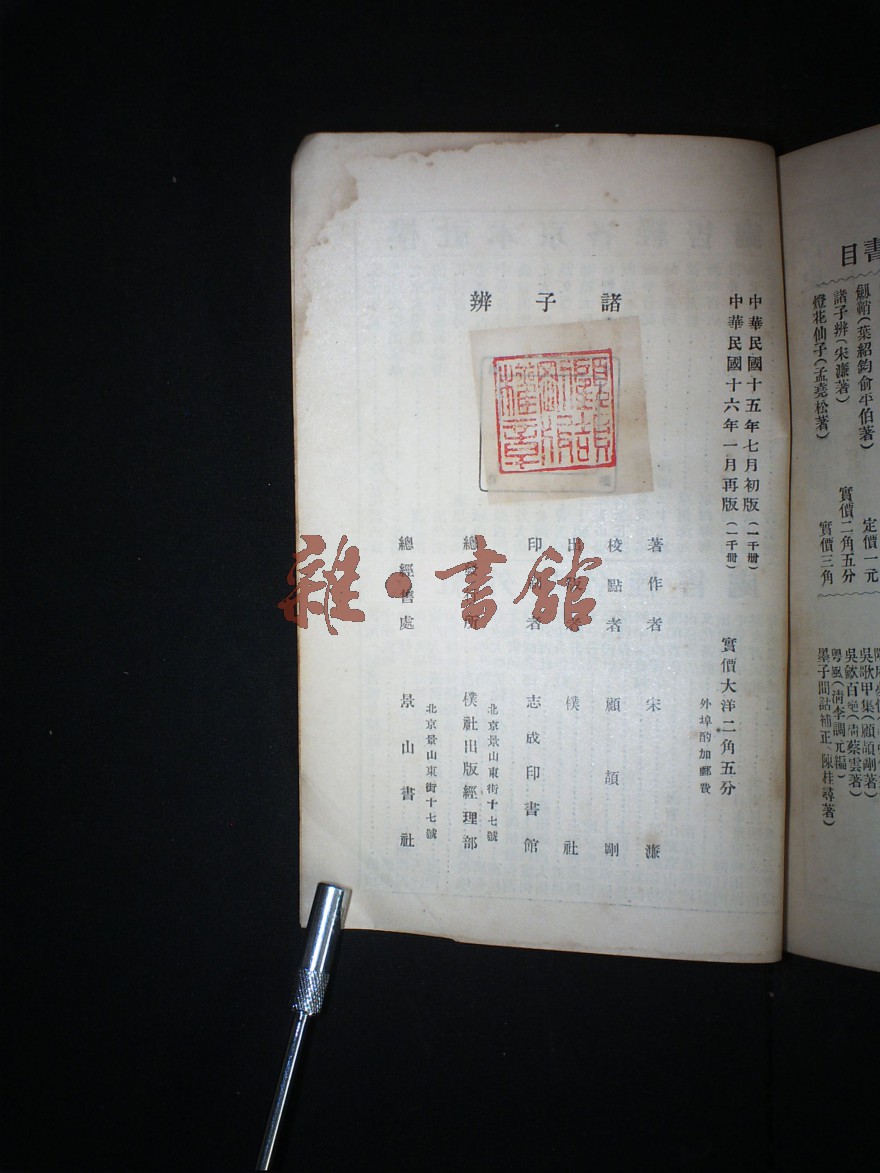 書目
劍鞘(葉紹鈞俞平伯著) 定價一元
諸子辨(宋濂著) 實價二角五分
燈花仙子(孟堯松著) 實價三角
吳歌甲集(顧頡剛著)
吳歈百絕(清蔡雲著)
粵風(清李調元編)
墨子間詁補正(陳桂尋著)
中華民國十五年七月初版(一千冊)
中華民國十六年一月再版(一千冊)
實價大洋二角五分
外埠酌加郵費
諸子辨
顧頡
剛版
權章
著作者 宋濂
校點者 顧頡剛
出版者 樸社
印刷者 志成印書館
北京景山東街十七號
總發行所 樸社出版經理部
北京景山東街十七號
總經售處 景山書社
雜·書館